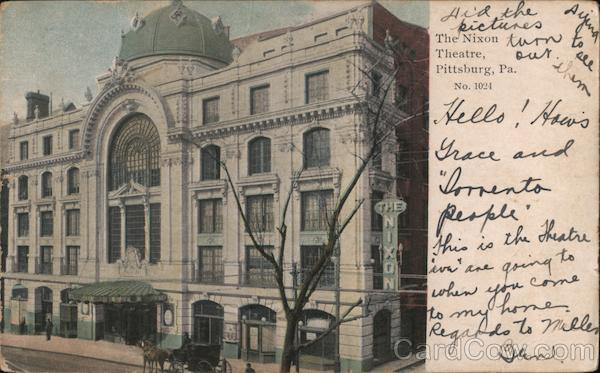 Did the
pictures
turn
out.
Dying
to
see
them
The Nixon
Theatre,
Pittsburg, Pa.
No. 1024
Hello! How's
Grace and
"Sorrento
people"
This is the Theatre
"we" are going to
when you come
to my home.
Regards to Miller
THE
NIXON
CardCow.com